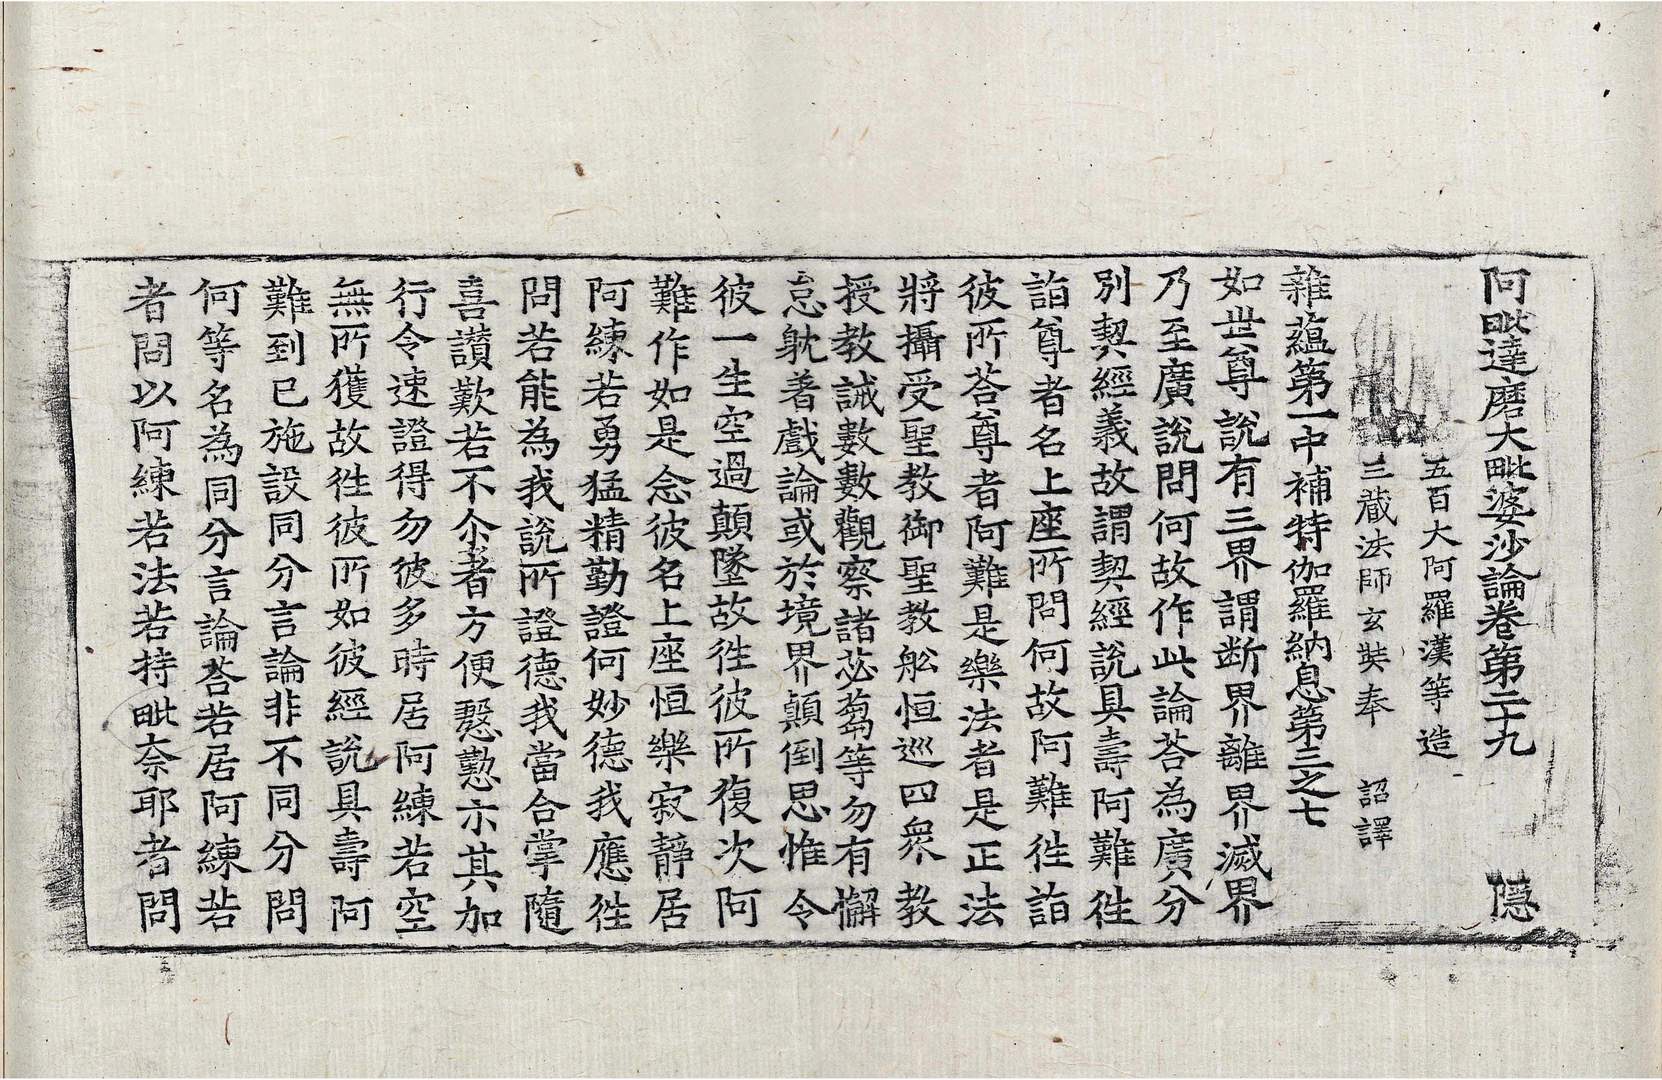 阿毗達磨大毗婆沙論卷第二十九 隱
五百大阿羅漢等造
三藏法師玄奘奉 詔譯
雜蘊第一中補特伽羅納息第三之七
如世尊說有三界謂斷界離界滅界
乃至廣說問何故作此論荅為廣分
別契經義故謂契經說具壽阿難徃
詣尊者名上座所問何故阿難徃詣
彼所荅尊者阿難是樂法者是正法
將攝受聖教御聖教舩恒巡四衆教
授教誡數數觀察諸苾芻等勿有懈
怠躭著戲論或於境界顛倒思惟令
彼一生空過顛墜故徃彼所復次阿
難作如是念彼名上座恒樂寂靜居
阿練若勇猛精勤證何妙德我應徃
問若能為我說所證德我當合掌隨
喜讃歎若不尒者方便慇懃示其加
行令速證得勿彼多時居阿練若空
無所獲故徃彼所如彼經說具壽阿
難到已施設同分言論非不同分問
何等名為同分言論荅若居阿練若
者問以阿練若法若持毗奈耶者問